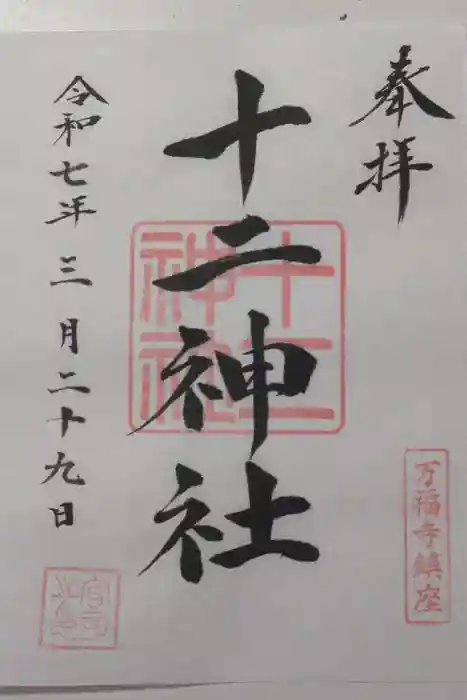 奉拝
十二神社
十二神社
万福寺鎮座
令和七年三月二十九日
宮司之印